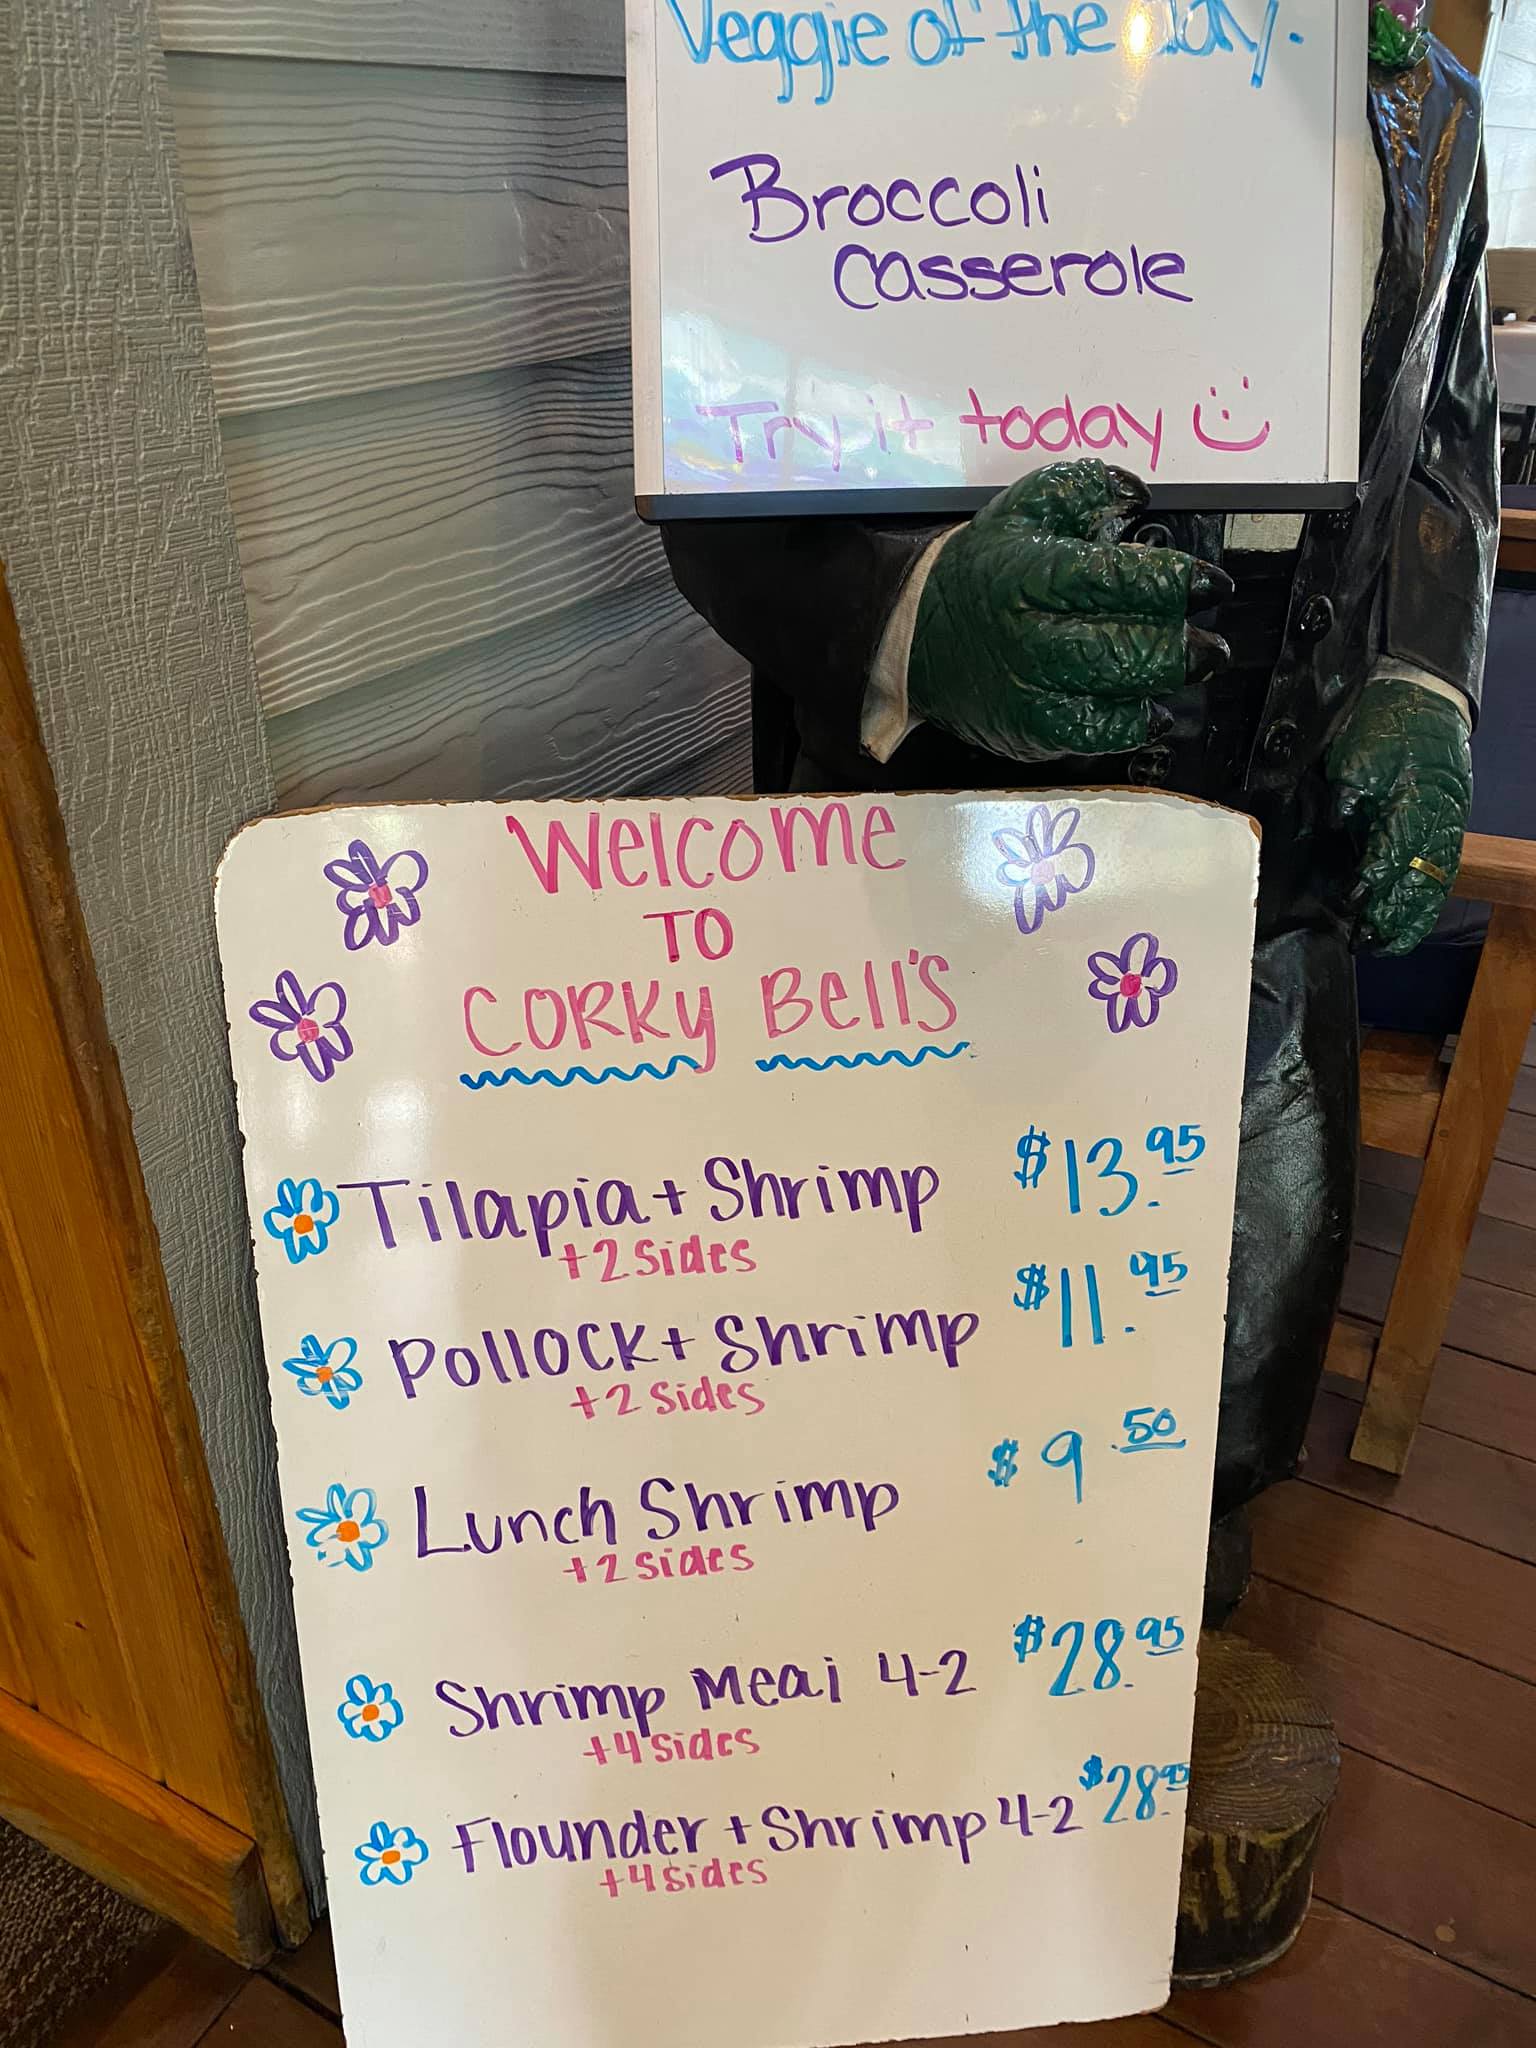 Veggie of the day.
Broccoli
casserole
Try it today
Welcome
TO
CORKY Bell's
Tilapia + Shrimp $13.95
+2 sides
Pollock + Shrimp $11.95
+2 sides
Lunch Shrimp $9.50
+2 sides
Shrimp Meal 4-2 $28.95
+4 sides
Flounder + Shrimp 4-2 $28.95
+4 sides